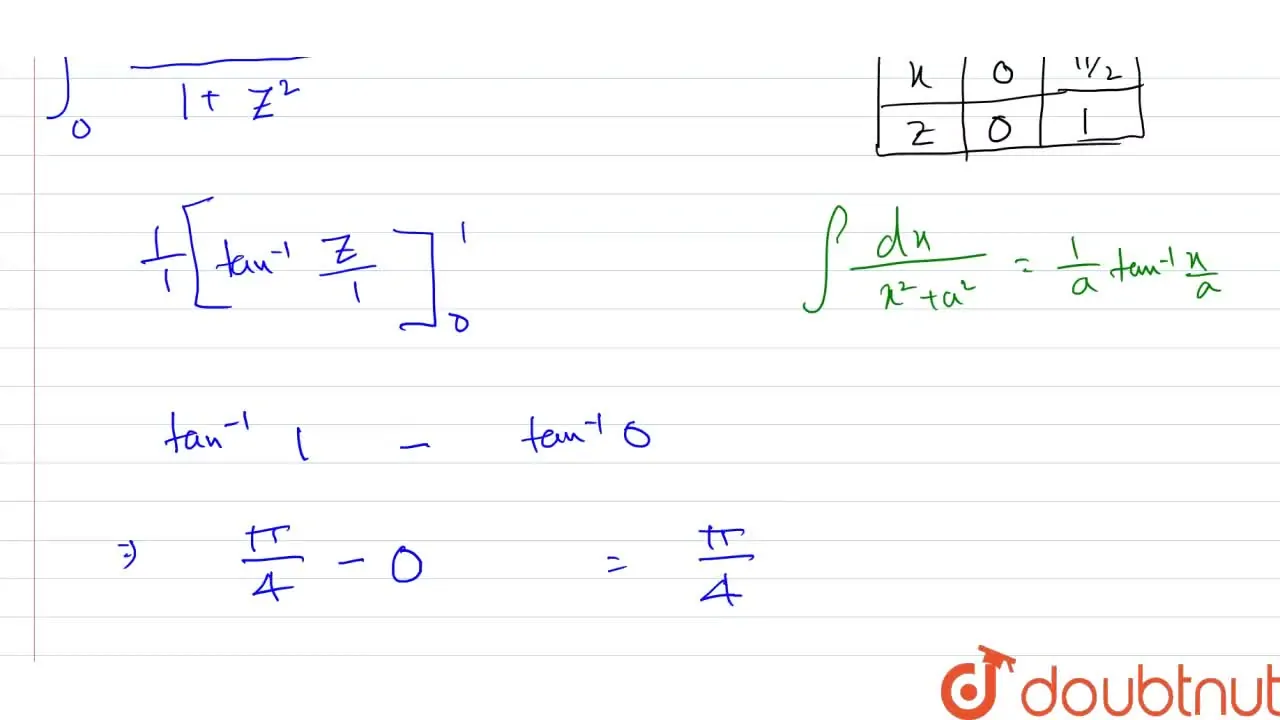 ∫₀ ―/(1 + z²)
x | 0 | π/2
z | 0 | 1
1/1 [tan⁻¹ z/1]₀¹
∫ dx/(x² + a²) = 1/a tan⁻¹ x/a
tan⁻¹ 1 – tan⁻¹ 0
⇒ π/4 – 0 = π/4
doubtnut